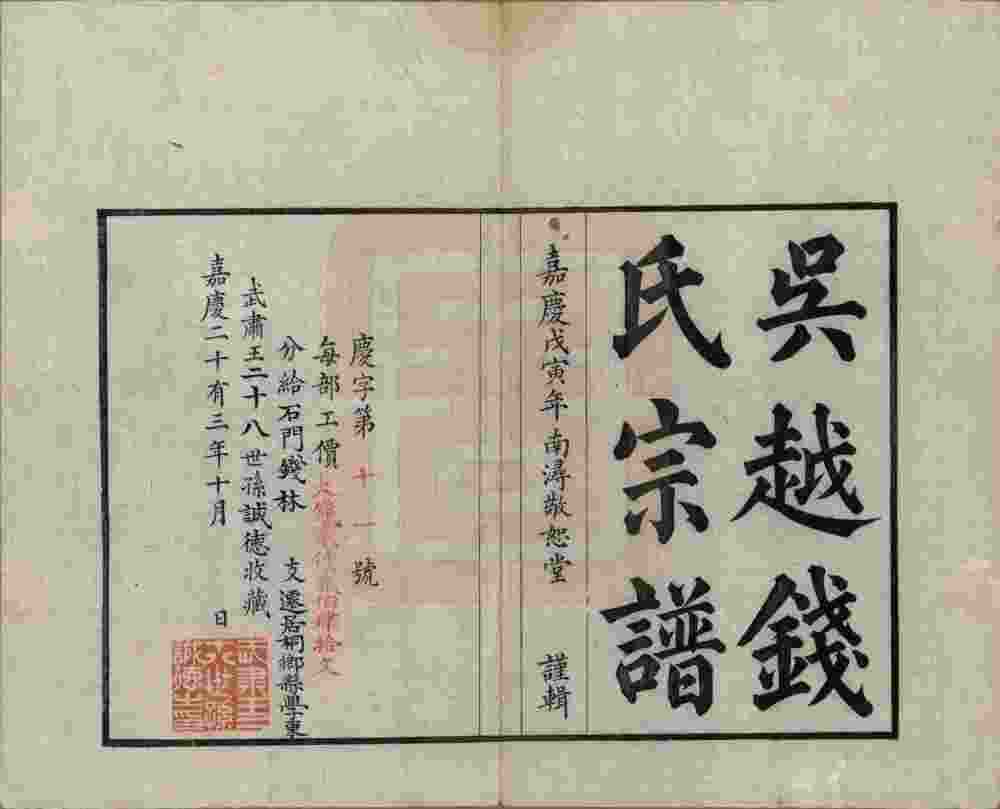 吳越錢
氏宗譜
嘉慶戊寅年南潯敬恕堂 謹輯
慶字第十一號
每部工價 拾文
分給石門錢林 支遷居桐鄉縣學東
武肅王二十八世孫誠德收藏
嘉慶二十有三年十月 日